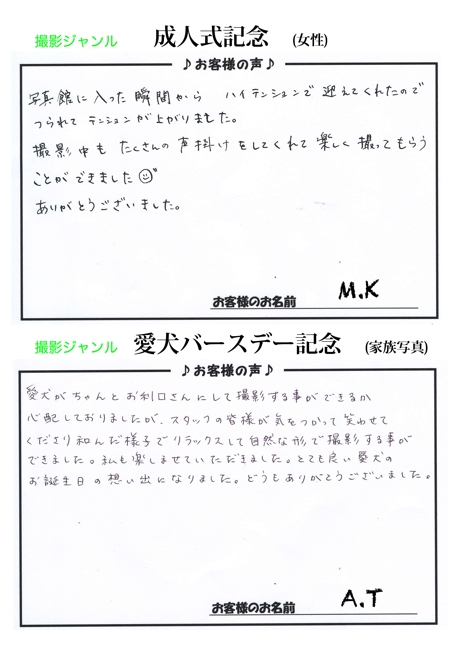 撮影ジャンル 成人式記念 (女性)
♪お客様の声♪
写真館に入った瞬間から ハイテンションで迎えてくれたので
つられてテンションが上がりました。
撮影中も たくさんの声掛けをしてくれて楽しく撮ってもらう
ことができました
ありがとうございました。
お客様のお名前 M.K
撮影ジャンル 愛犬バースデー記念 (家族写真)
♪お客様の声♪
愛犬がちゃんとお利口さんにして撮影する事ができるか
心配しておりましたが、スタッフの皆様が気をつかって笑わせて
くださり和んだ様子でリラックスして自然な形で撮影する事が
できました。私も楽しませていただきました。とても良い愛犬の
お誕生日の想い出になりました。どうもありがとうございました。
お客様のお名前 A.T